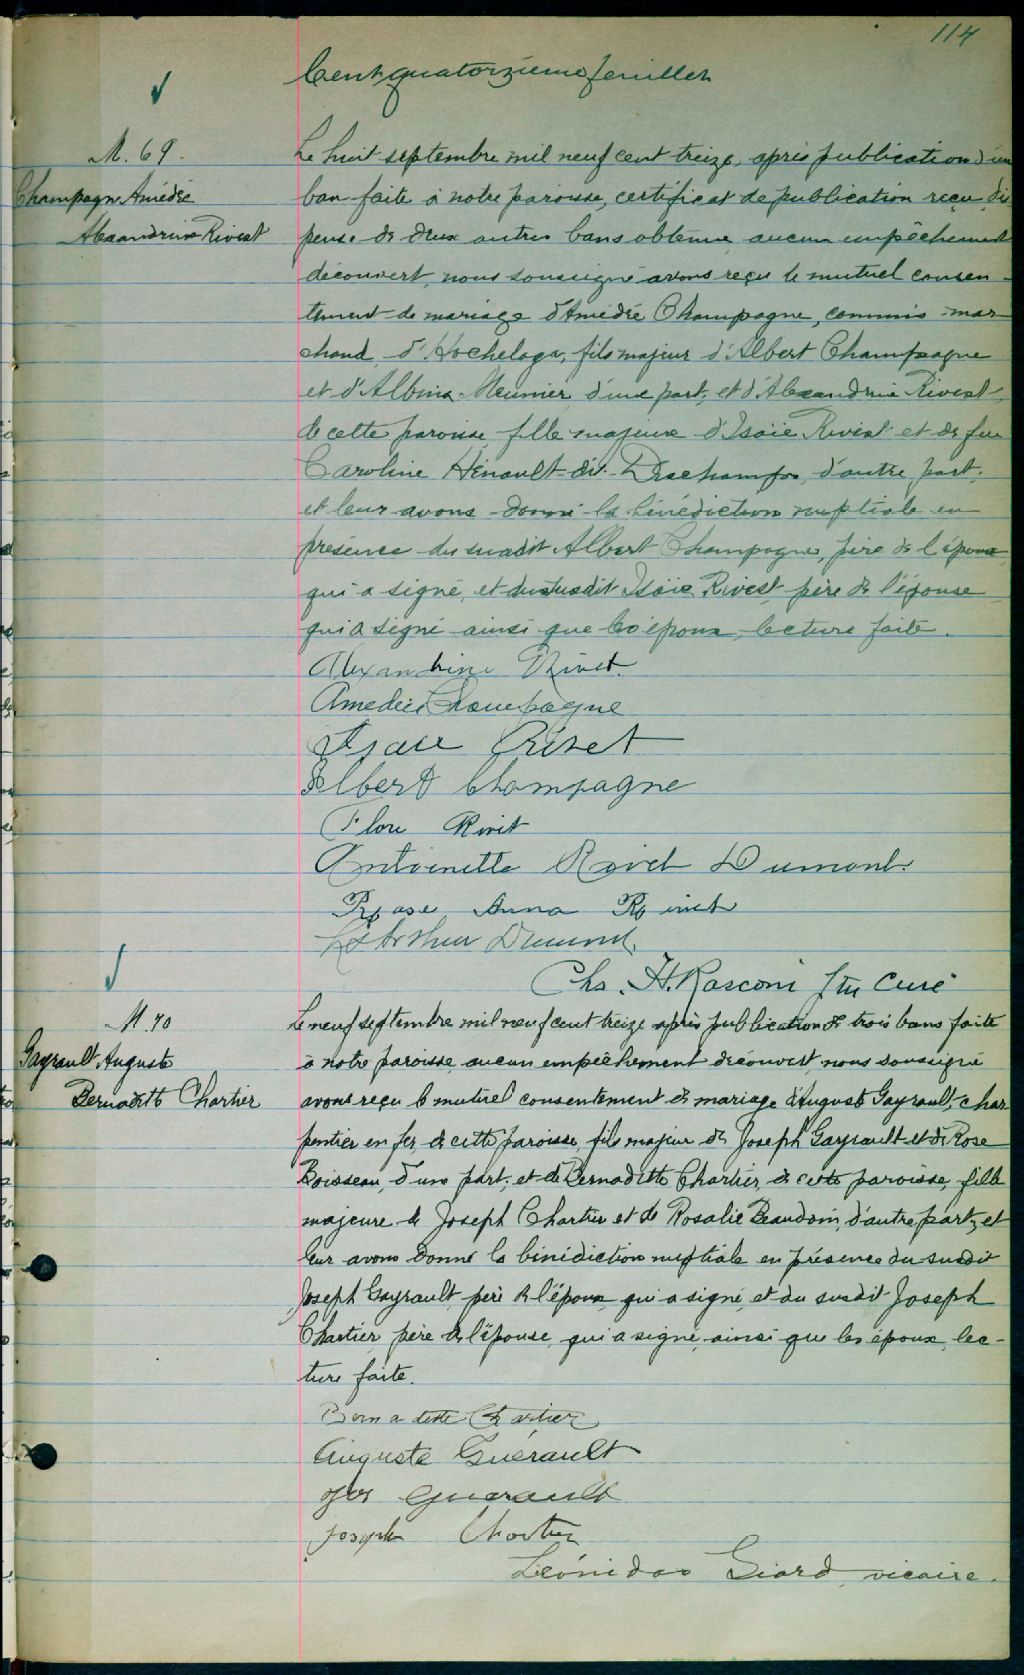 114
Cent quatorzième feuillet
M. 69.
Champagne Amédée
Alexandrine Rivest
Le huit septembre mil neuf cent treize, après publication d'un
ban faite à notre paroisse, certificat de publication reçu, dis
pense de deux autres bans obtenue aucun empêchement
découvert, nous soussigné avons reçu le mutuel consen-
tement de mariage d'Amédée Champagne, commis-mar
chand d'Hochelaga, fils majeur d'Albert Champagne
et d'Albina Meunier, d'une part; et d'Alexandrine Rivest,
de cette paroisse fille majeure d'Isaïe Rivest et de feu
Caroline Hénault-dit-Deschamps, d'autre part;
et leur avons donné la bénédiction nuptiale en
présence du susdit Albert Champagne, père de l'époux
qui a signé, et du susdit Isaïe Rivest, père de l'épouse
qui a signé ainsi que les époux, lecture faite.
Alexandrine Rivest.
Amedée Champagne
Isaie Rivest
Albert Champagne
Flore Rivet
Antoinette Rivet Dumont.
Rose Anna Rivet
Arthur Dumont.
Chs. H. Rasconi Ptre Curé
M. 70
Gayrault Auguste
Bernadette Chartier
Le neuf septembre mil neuf cent treize après publication de trois bans faite
à notre paroisse, aucun empêchement découvert, nous soussigné
avons reçu le mutuel consentement de mariage d'Auguste Gayrault, char
pentier en fer, de cette paroisse, fils majeur de Joseph Gayrault et de Rose
Boisseau, d'une part; et de Bernadette Chartier, de cette paroisse, fille
majeure de Joseph Chartier et de Rosalie Beaudoin, d'autre part; et
leur avons donné la bénédiction nuptiale en présence du susdit
Joseph Gayrault, père de l'époux, qui a signé, et du susdit Joseph
Chartier, père de l'épouse, qui a signé, ainsi que les époux, lec-
ture faite.
Bernadette Chartier
Auguste Guérault
Jos Guerault
Joseph Chartier
Léonidas Giard, vicaire.